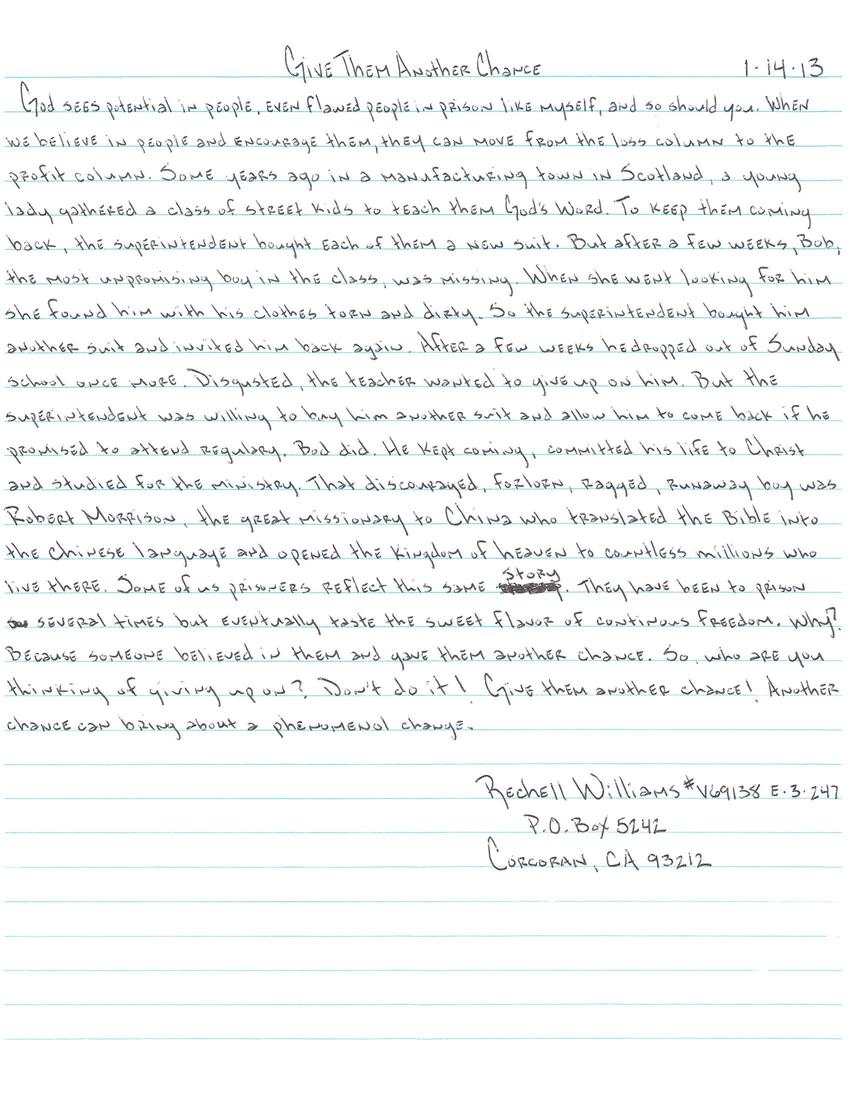 Give Them Another Chance 1·14·13
God sees potential in people, even flawed people in prison like myself, and so should you. When
we believe in people and encourage them, they can move from the loss column to the
profit column. Some years ago in a manufacturing town in Scotland, a young
lady gathered a class of street kids to teach them God's Word. To keep them coming
back, the superintendent bought each of them a new suit. But after a few weeks, Bob,
the most unpromising boy in the class, was missing. When she went looking for him
she found him with his clothes torn and dirty. So the superintendent bought him
another suit and invited him back again. After a few weeks he dropped out of Sunday
school once more. Disgusted, the teacher wanted to give up on him. But the
superintendent was willing to buy him another suit and allow him to come back if he
promised to attend regulary. Bod did. He kept coming, committed his life to Christ
and studied for the ministry. That discouraged, forlorn, ragged, runaway boy was
Robert Morrison, the great missionary to China who translated the Bible into
the Chinese language and opened the kingdom of heaven to countless millions who
live there. Some of us prisoners reflect this same story. They have been to prison
several times but eventually taste the sweet flavor of continous freedom. Why?
Because someone believed in them and gave them another chance. So, who are you
thinking of giving up on? Don't do it! Give them another chance! Another
chance can bring about a phenomenol change.
Rechell Williams #V69138 E·3·247
P.O. Box 5242
Corcoran, CA 93212